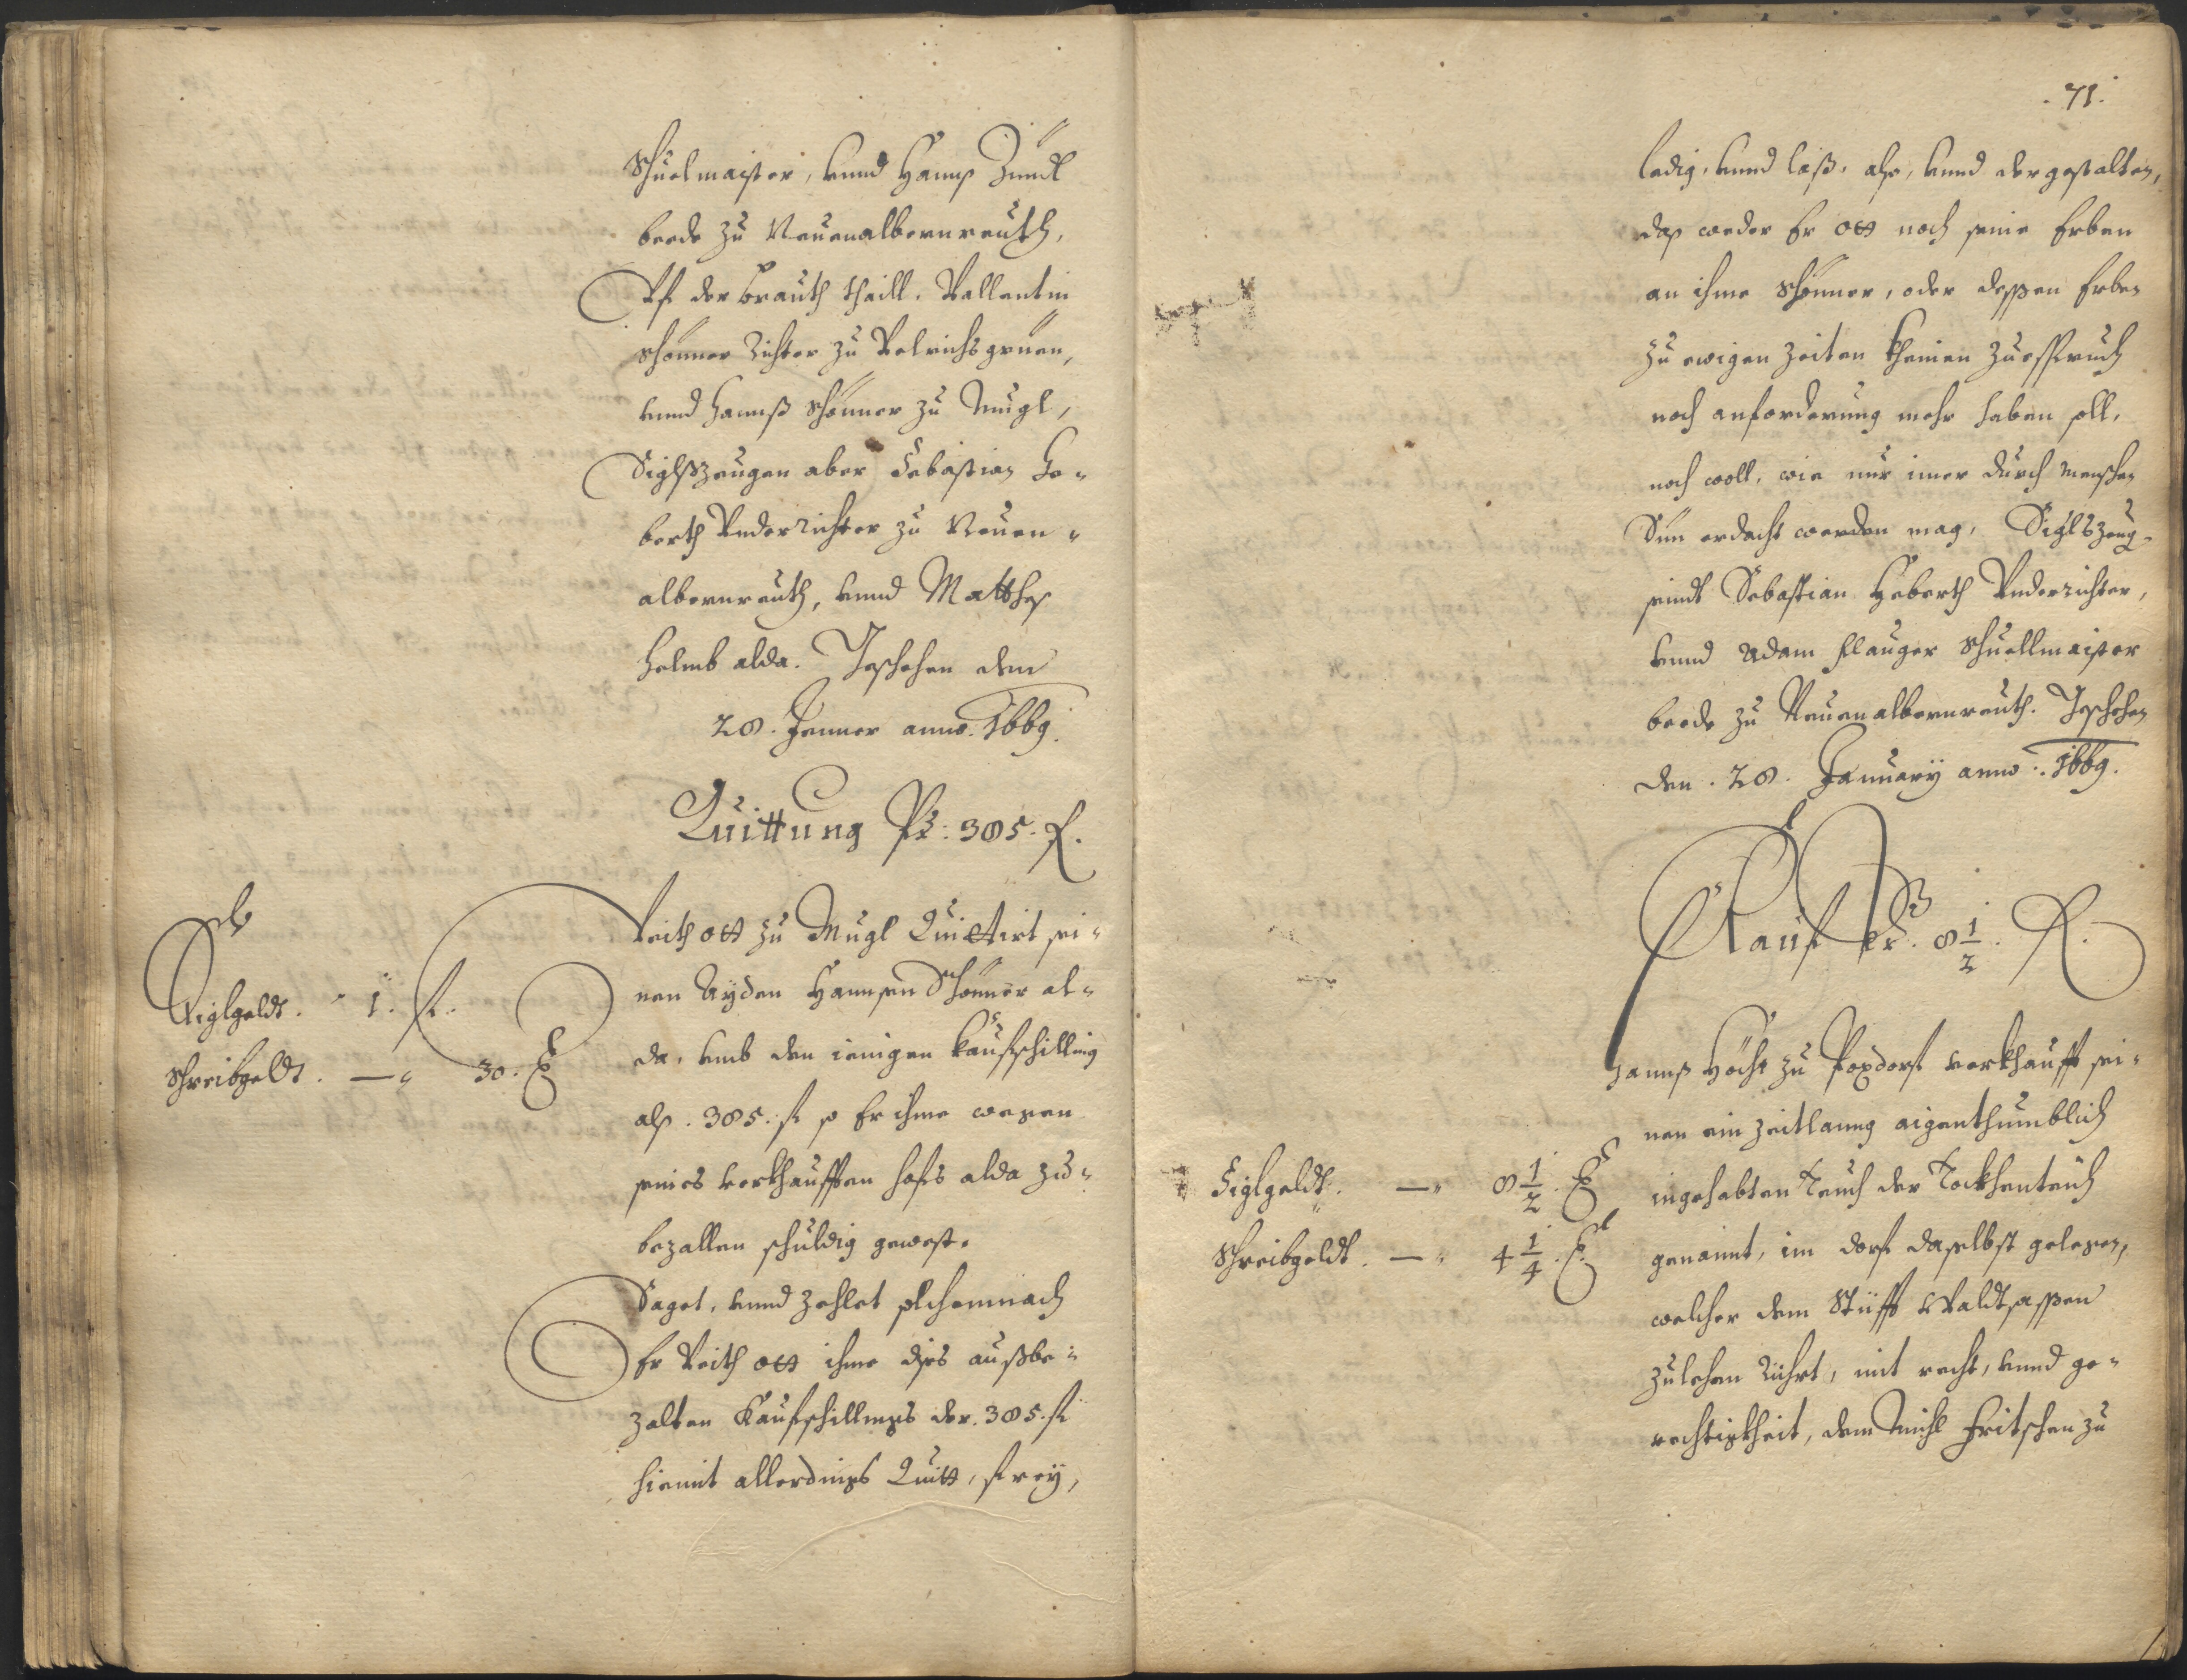 Schuelmaister, vnnd Hannß Zindl
beede zu Neuenalbernreuth,
Vf der brauth thaill. Vallentin
Schönner Richter zu Pelrichsgruen,
vnnd hannß Schönner zu Mugl,
Siglßzeugen aber Sebastian He-
berth Vnderrichter zu Neuen-
albernreuth, vnnd Matthes
Helmb alda. Geschehen den
28. Jenner anno. 1669.
Quittung Pr: 385. f.
Veith Ott zu Mugl Quittirt sei-
nen Ayden Hannsen Schönner al-
da, vmb den ienigen kaufschilling
alß. 385. f. so Er ihme wegen
seines verkhaufften hofs alda zu-
bezallen schuldig gewest.
Saget, vnnd zehlet solchemnach
Er Veith Ott ihme diß außbe-
zalten Kaufschillings der. 385. f.
hiemit allerdings Quitt, frey,
Siglgeldt. 1. f.
Schreibgeldt. — 30. x
71.
ledig, vnnd loß. also, vnnd dergestalten,
daß weder Er Ott noch seine Erben
an ihme Schönner, oder dessen Erben
zu ewigen Zeiten kheinen Zuespruch
noch anforderung mehr haben soll,
noch woll, wie nur imer durch menschen
Sün erdacht werden mag, Siglszeug.
seindt Sebastian Heberth Vnderrichter,
vnnd Adam Flauger Schuellmaister
beede zu Neuenalbernreuth. Geschehen
den. 28. January anno. 1669.
Kauf Pr. 8 1/2. f.
Hannß Höcht zu Poxdorf verkhaufft sei-
nen ein Zeitlanng aigenthumblich
ingehabten Teuch der Tockhenteich
genannt, im dorf daselbst gelegen,
welcher dem Stüfft Waldtsassen
zulehen Rührt, mit recht, vnnd ge-
rechtigkheit, dem Michl Fritschen zu
Siglgeldt. — 8 1/2. x
Schreibgeldt. — 4 1/4. x